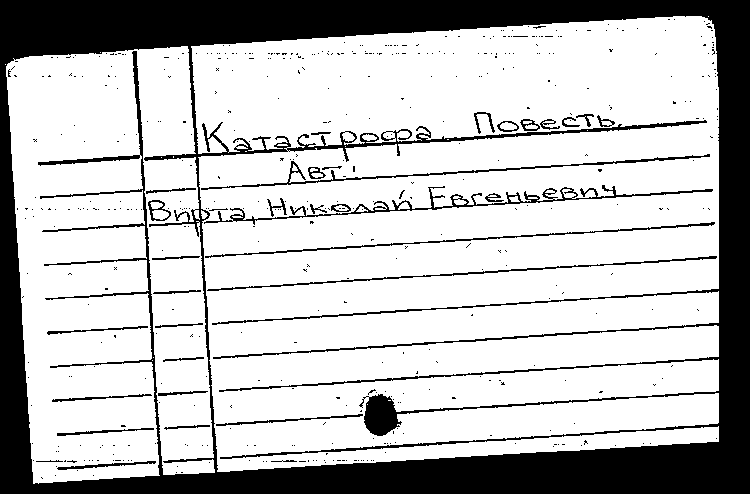 Катастрофа. Повесть.
Авт.:
Вирта, Николай Евгеньевич